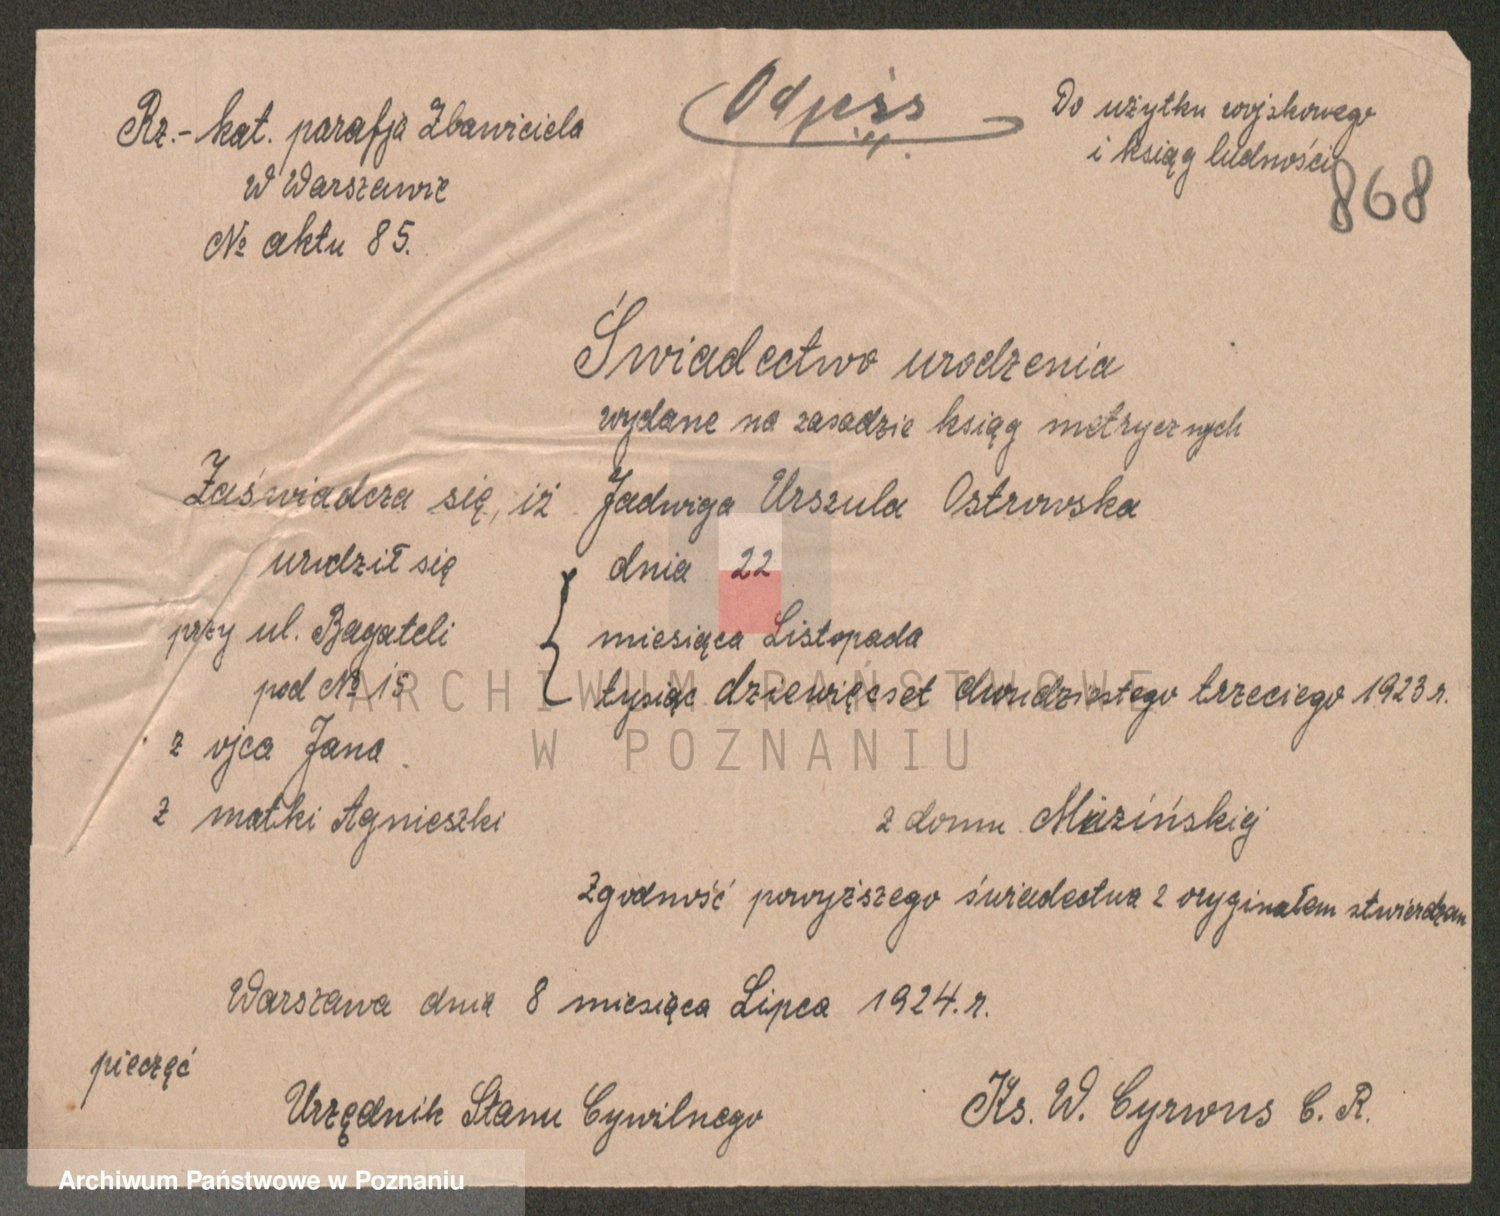 Odpis
Do użytku wojskowego
i ksiąg ludności
868
Rz.-kat. parafja Zbawiciela
w Warszawie
№ aktu 85.
Świadectwo urodzenia
wydane na zasadzie ksiąg metrycznych
Zaświadcza się, iż Jadwiga Urszula Ostrowska
urodził się dnia 22
przy ul. Bagateli miesiąca Listopada
pod № 15 tysiąc dziewięćset dwudziestego trzeciego 1923 r.
z ojca Jana
z matki Agnieszki z domu Muzińskiej
Zgodność powyższego świadectwa z oryginałem stwierdzam
Warszawa dnia 8 miesiąca Lipca 1924. r.
pieczęć
Urzędnik Stanu Cywilnego Ks. W. Cyrwus C. R.
ARCHIWUM PAŃSTWOWE
W POZNANIU
Archiwum Państwowe w Poznaniu